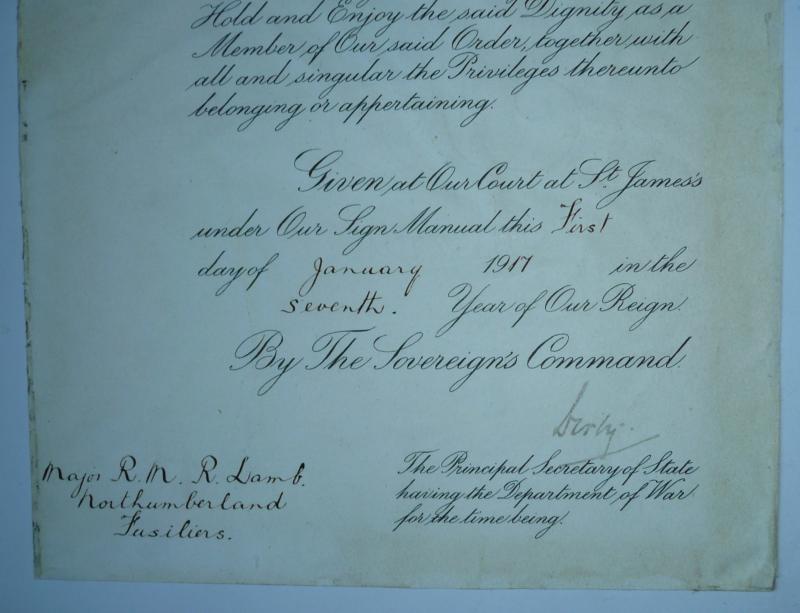 Hold and Enjoy the said Dignity as a
Member of Our said Order, together with
all and singular the Privileges thereunto
belonging or appertaining.
Given at Our Court at St. James's
under Our Sign Manual this First
day of January 1917 in the
seventh. Year of Our Reign.
By The Sovereign's Command.
Derby.
Major R. M. R. Lamb.
Northumberland
Fusiliers.
The Principal Secretary of State
having the Department of War
for the time being.